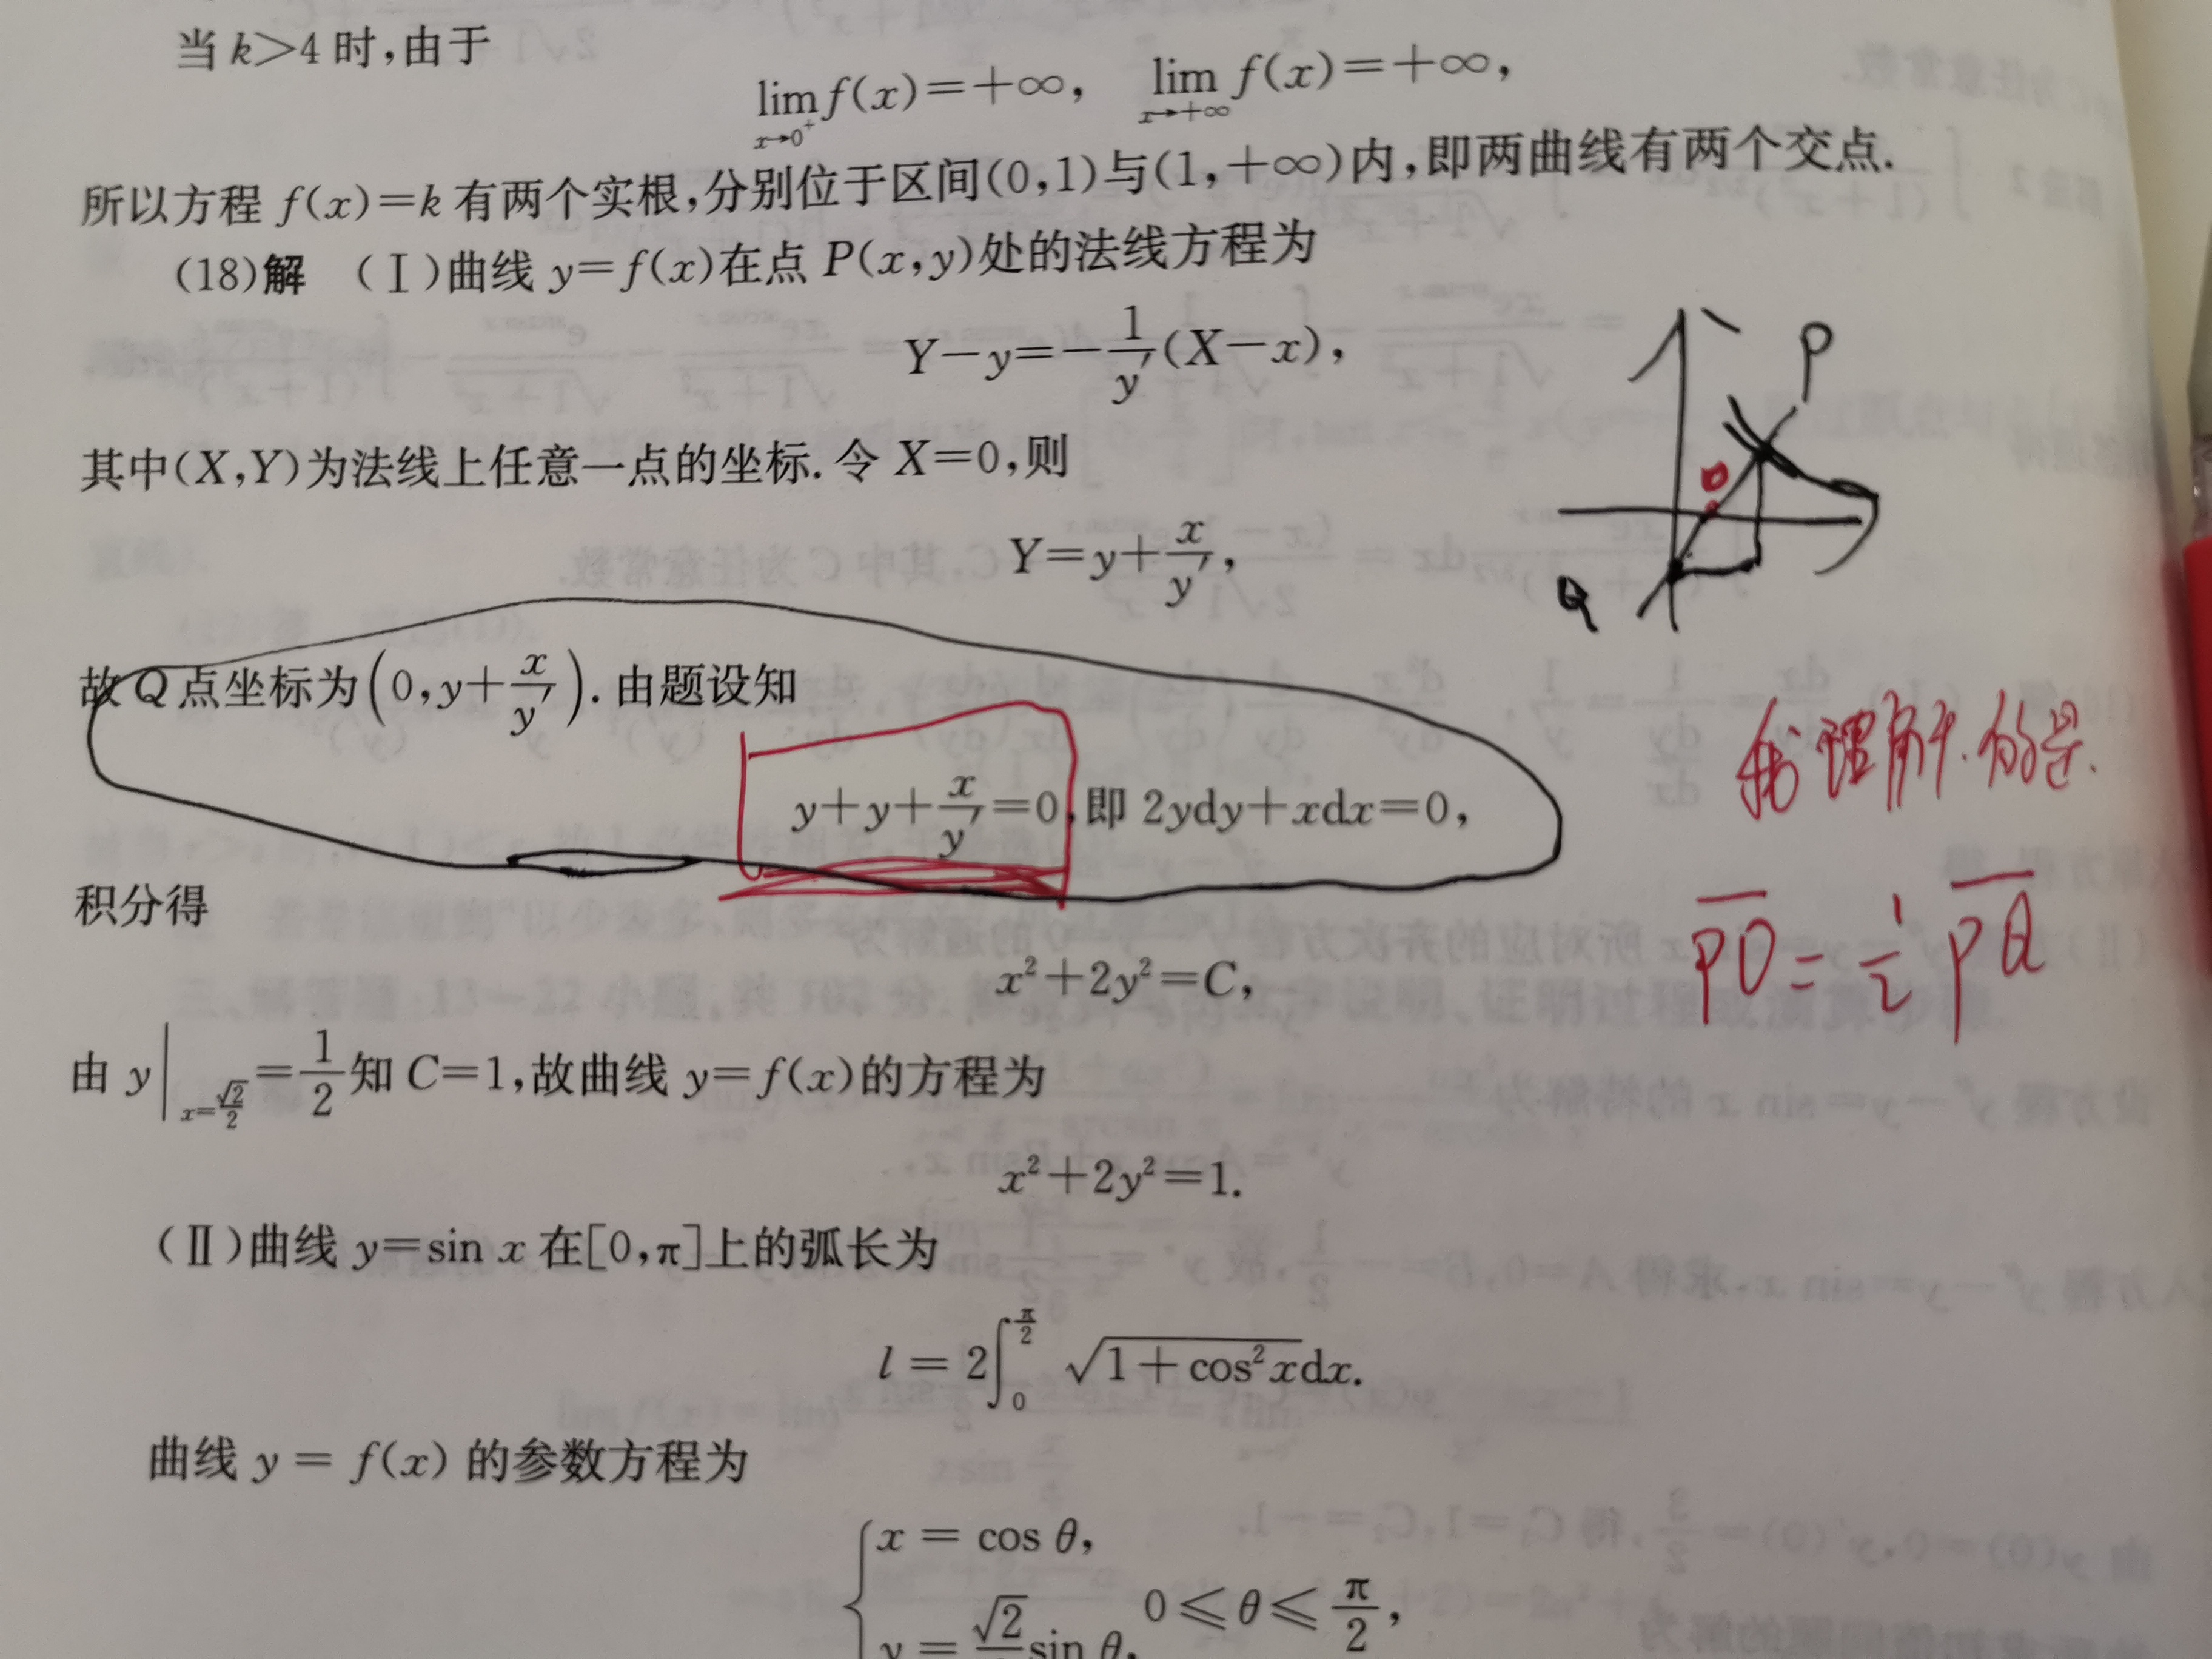 当 k>4 时,由于
lim_{x→0⁺} f(x)=+∞, lim_{x→+∞} f(x)=+∞,
所以方程 f(x)=k 有两个实根,分别位于区间(0,1)与(1,+∞)内,即两曲线有两个交点.
(18)解 (Ⅰ)曲线 y=f(x)在点 P(x,y)处的法线方程为
Y−y=−1/y′(X−x),
P
其中(X,Y)为法线上任意一点的坐标.令 X=0,则
Y=y+x/y′,
Q
故 Q 点坐标为(0,y+x/y′).由题设知
我理解的是.
y+y+x/y′=0,即 2ydy+xdx=0,
积分得
x²+2y²=C,
由 y|_{x=√2/2}=1/2 知 C=1,故曲线 y=f(x)的方程为
x²+2y²=1.
(Ⅱ)曲线 y=sin x 在[0,π]上的弧长为
l = 2∫_0^{π/2} √(1+cos²x)dx.
曲线 y = f(x) 的参数方程为
x = cos θ,
0≤θ≤π/2,